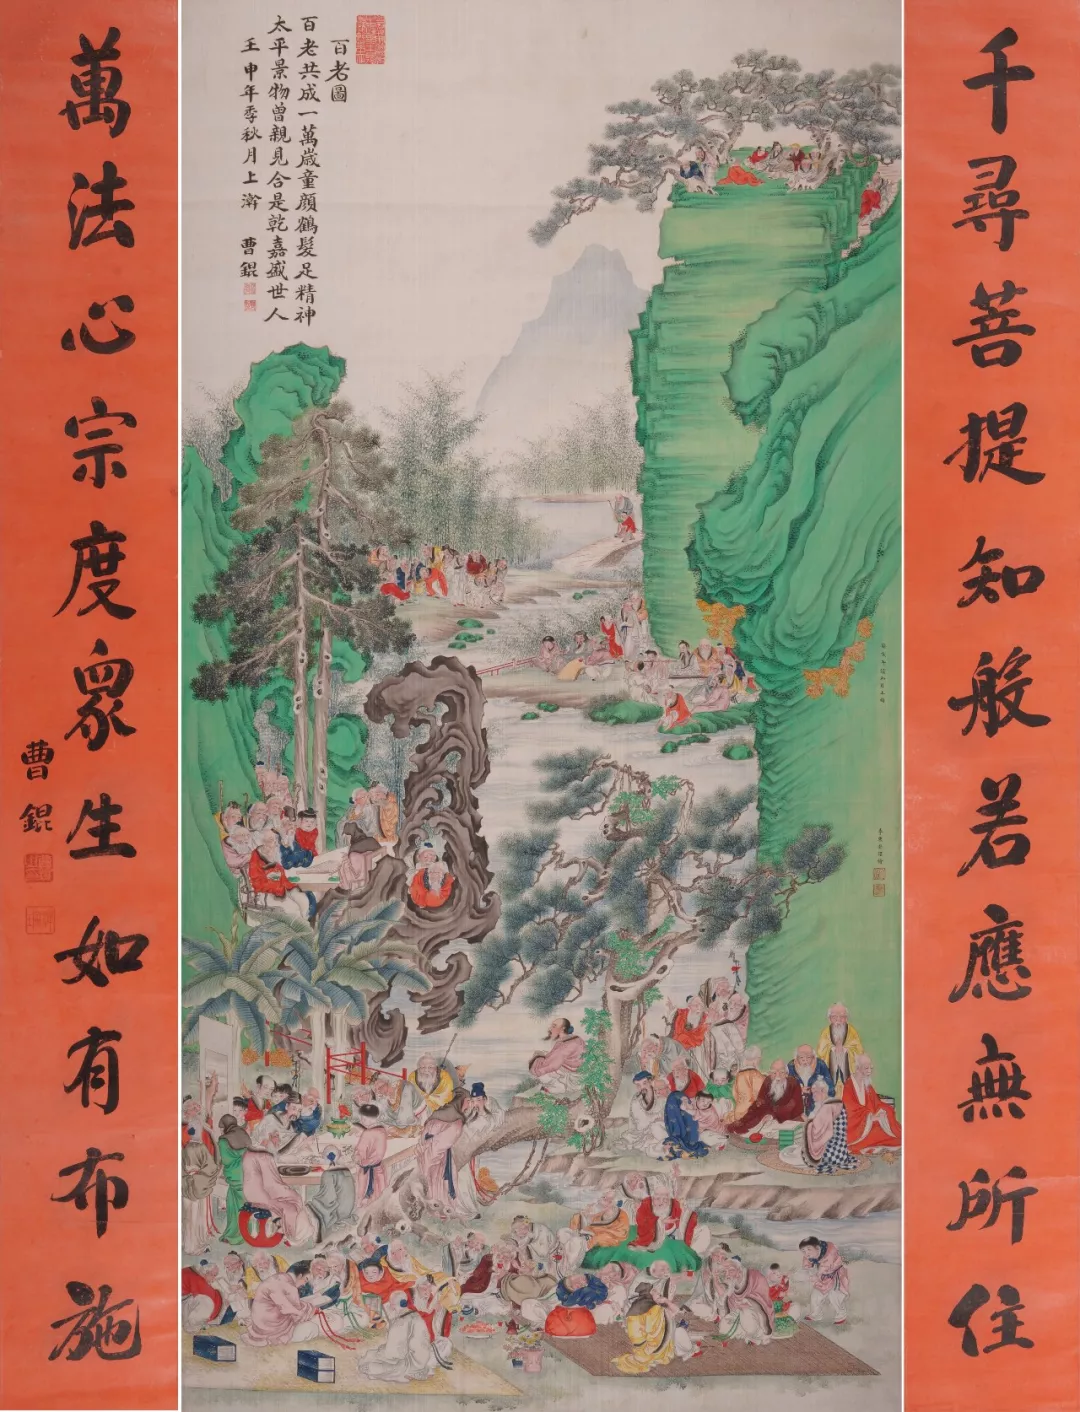 千尋菩提知般若應無所住
百老圖
百老共成一萬歲童顏鶴髮足精神
太平景物曾親見合是乾嘉盛世人
壬申年季秋月上澣 曹錕
萬法心宗度眾生如有布施
曹錕